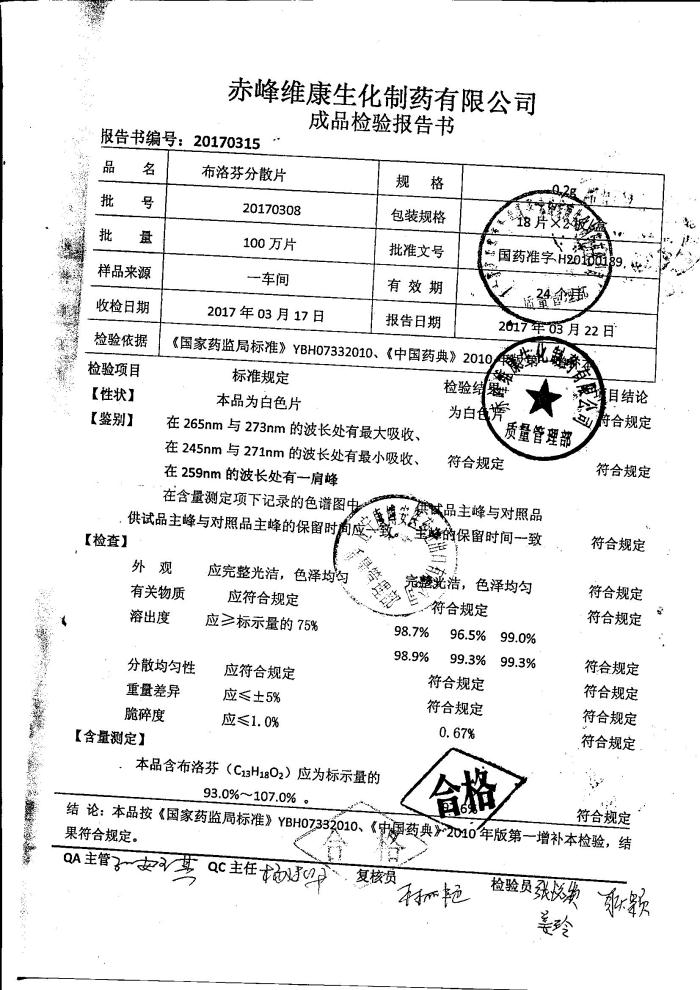 赤峰维康生化制药有限公司
成品检验报告书
报告书编号：20170315
品 名 布洛芬分散片 规 格 0.2g
批 号 20170308 包装规格 18片×2板/盒
批 量 100万片 批准文号 国药准字H20100189
样品来源 一车间 有 效 期 24个月
收检日期 2017 年 03 月 17 日 报告日期 2017 年 03 月 22 日
检验依据 《国家药监局标准》YBH07332010、《中国药典》2010
检验项目 标准规定 检验结果 项目结论
【性状】 本品为白色片 为白色片 符合规定
【鉴别】 在 265nm 与 273nm 的波长处有最大吸收、
在 245nm 与 271nm 的波长处有最小吸收、 符合规定 符合规定
在 259nm 的波长处有一肩峰
在含量测定项下记录的色谱图中 供试品主峰与对照品
供试品主峰与对照品主峰的保留时间应一致 主峰的保留时间一致 符合规定
【检查】
外 观 应完整光洁，色泽均匀 完整光洁，色泽均匀 符合规定
有关物质 应符合规定 符合规定 符合规定
溶出度 应≥标示量的 75% 98.7% 96.5% 99.0%
98.9% 99.3% 99.3% 符合规定
分散均匀性 应符合规定 符合规定 符合规定
重量差异 应≤±5% 符合规定 符合规定
脆碎度 应≤1.0% 0.67% 符合规定
【含量测定】
本品含布洛芬（C₁₃H₁₈O₂）应为标示量的
93.0%～107.0% 。 符合规定
合格
结 论：本品按《国家药监局标准》YBH07332010、《中国药典》2010 年版第一增补本检验，结
果符合规定。
合 格
QA 主管 QC 主任 复核员 检验员
姜玲
赤峰维康生化制药有限公司
质量管理部
质量管理部